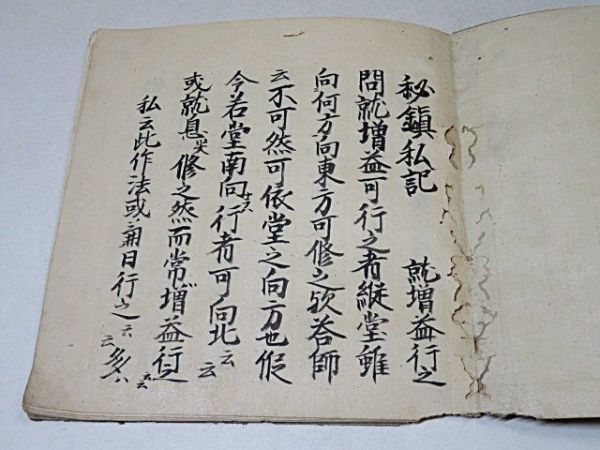 秘鎮私記　就増益行之
問就増益可行之者縦堂雖
向何方向東方可修之欤答師
云不可然可依堂之向方也假
今若堂南向ナラハ行者可向北云云
或就息災修之然而常増益行之云云
私云此作法或 日行之云云多ハ